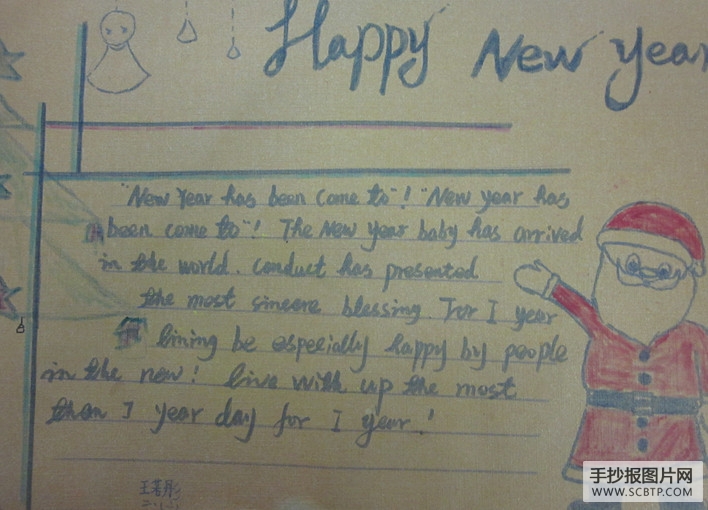 Happy New Year
"New Year has been come to"! "New year has
been come to"! The New Year baby has arrived
in the world. Conduct has presented
the most sincere blessing. For I year
lining be especially happy by people
in the new! live with up the most
than I year day for I year!
手抄报图片网
WWW.SCBTP.COM